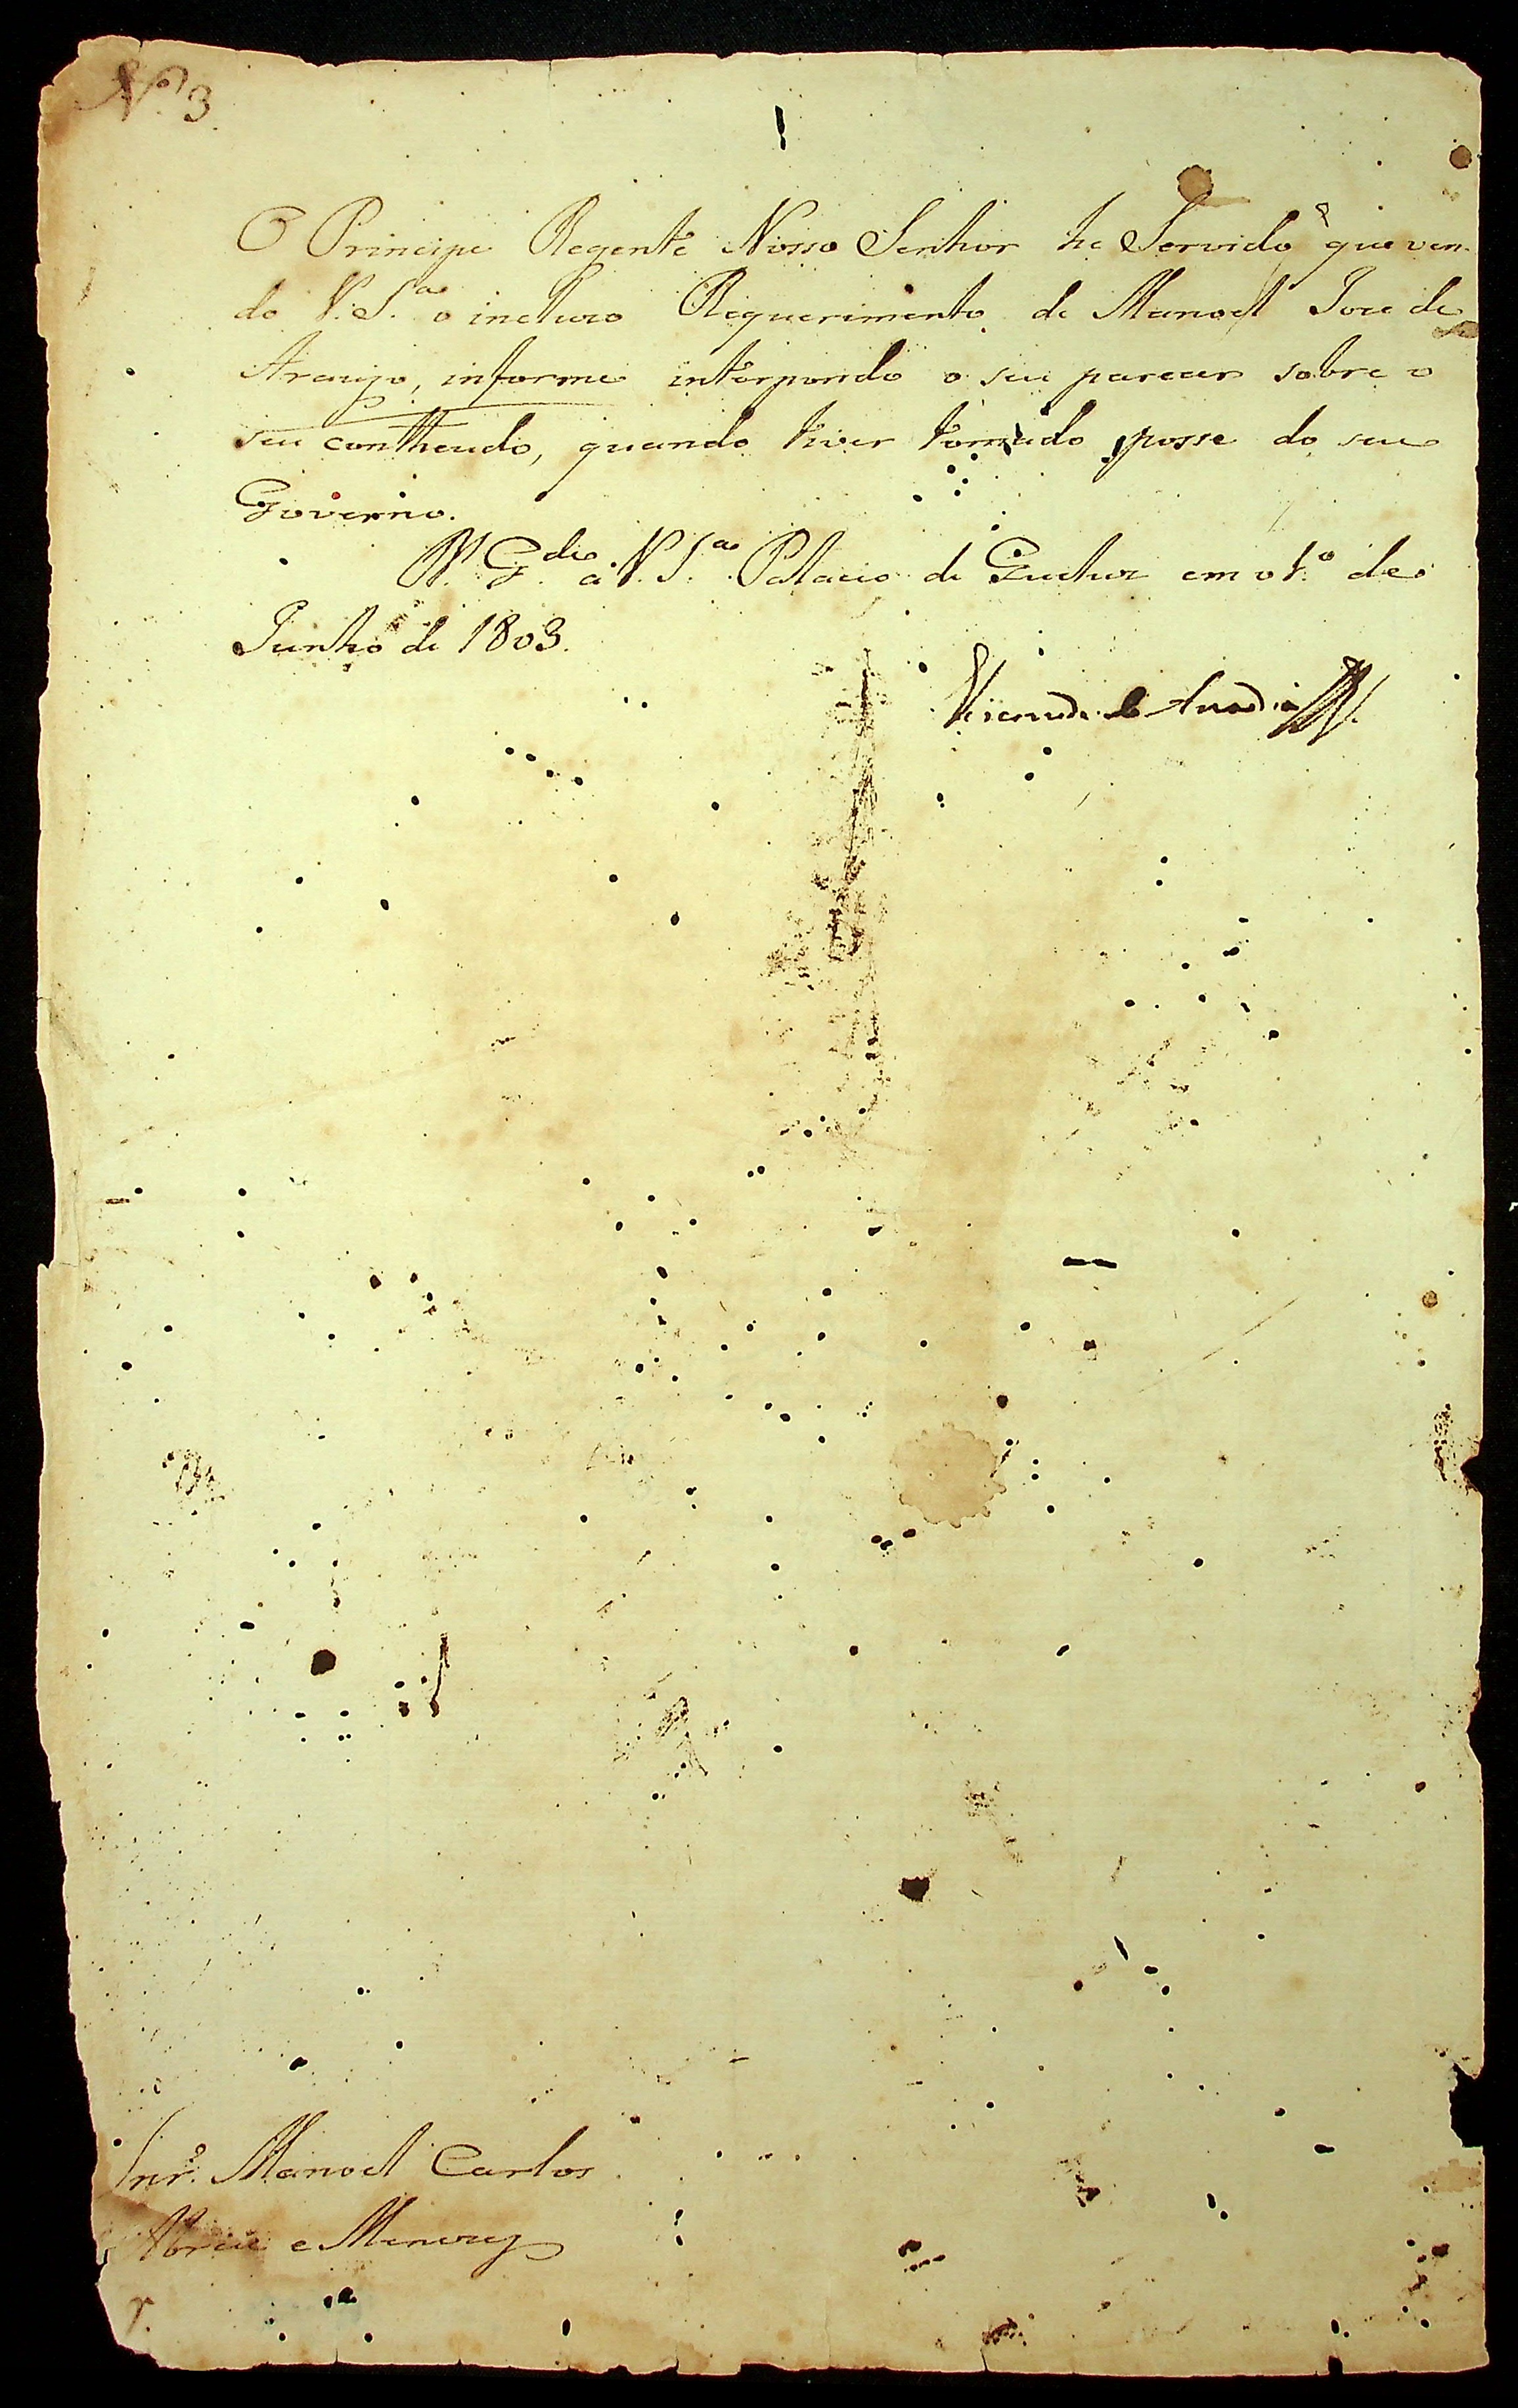 N.º 3.
O Principe Regente Nosso Senhor he Servido que ven-
do V. S.ª o incluso Requerimento de Manoel Joze de
Araujo, informe interpondo o seu parecer sobre o
seu contheudo, quando tiver tomado posse do seu
Governo.
D.s G.de a V. S.ª Palacio de Queluz em o 1.º de
Junho de 1803.
Visconde de Anadia
Snr. Manoel Carlos
Abreu e Menezes